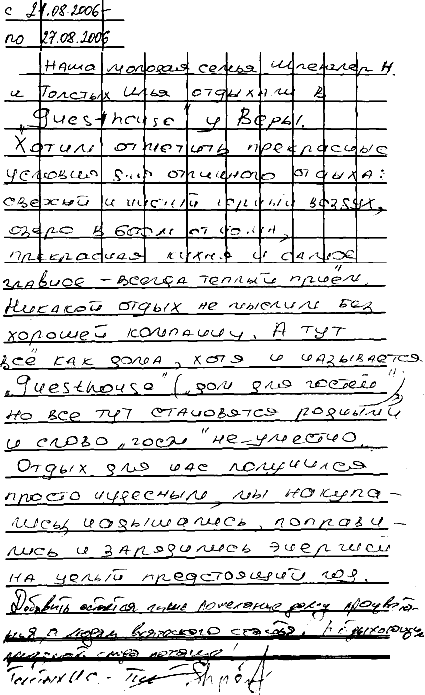 с 21.08.2006-
по 27.08.2006
Наша молодая семья Шпенглер Н.
и Толстых Илья отдыхали в
„Guesthouse" у Веры.
Хотим отметить прекрасные
условия для отличного отдыха:
свежий и чистый горный воздух,
озеро в 600м от дома,
прекрасная кухня и самое
главное – всегда тёплый приём.
Никакой отдых не мыслим без
хорошей компании. А тут
всё как дома, хотя и называется
„Guesthouse" („дом для гостей")
но все тут становятся родными
и слово „гость" не-уместно.
Отдых для нас получился
просто чудесным, мы накупа-
лись, надышались, поправи-
лись и зарядились энергией
на целый предстоящий год.
Добавить остаётся лишь пожелание дому процвета-
ния, а людям